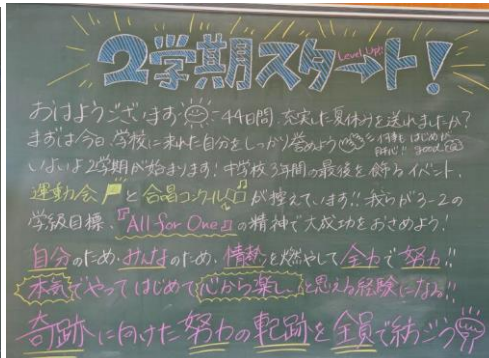 2学期スタート!
Level Up!
おはようございます 44日間、充実した夏休みを送れましたか?
まずは今日、学校に来れた自分をしっかり誉めよう 何事も はじめが
肝心!! good
いよいよ2学期が始まります! 中学校3年間の最後を飾るイベント、
運動会 と合唱コンクール が控えています!! 我ら3-2の
学級目標、『All for One』の精神で大成功をおさめよう!
自分のため・みんなのため、情熱を燃やして全力で努力!!
本気でやってはじめて心から楽しいと思える経験になる!!
奇跡に向けた努力の軌跡を全員で紡ごう